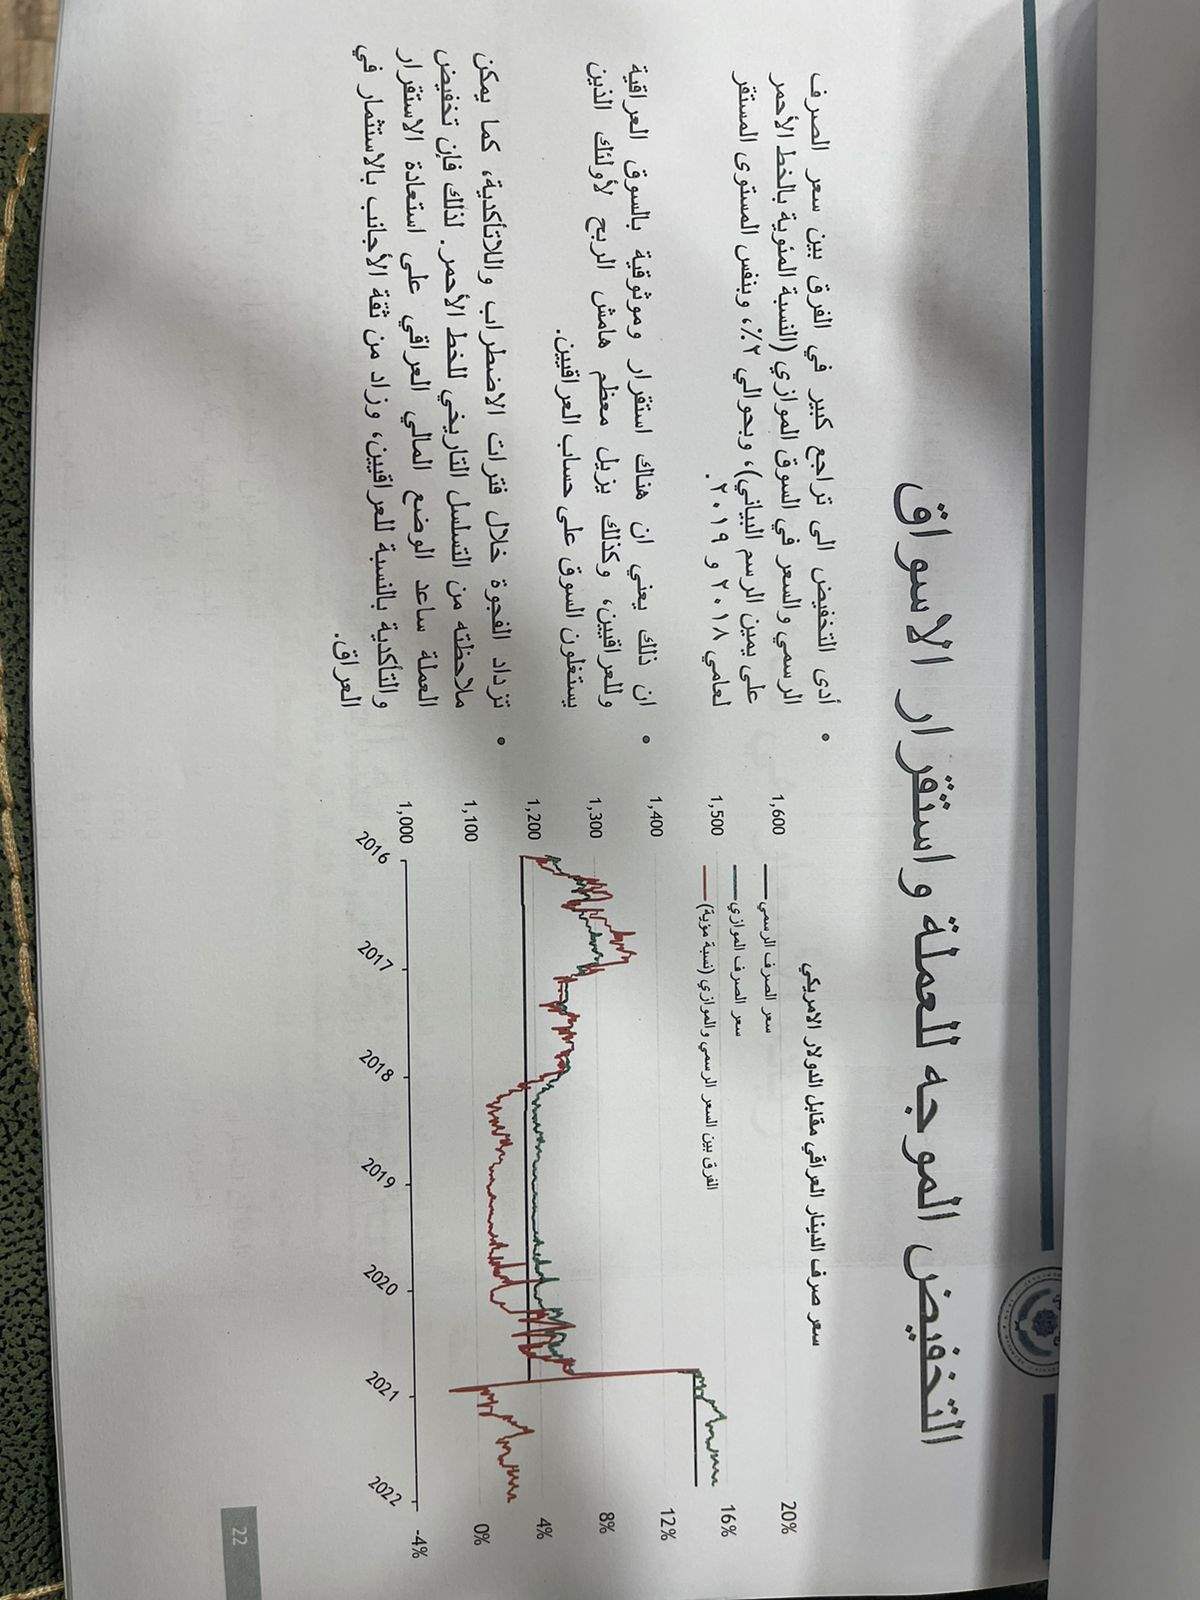 التخفيض الموجه للعملة واستقرار الاسواق
• أدى التخفيض الى تراجع كبير في الفرق بين سعر الصرف
الرسمي والسعر في السوق الموازي (النسبة المئوية بالخط الأحمر
على يمين الرسم البياني)، وبحوالي ٢٪، وبنفس المستوى المستقر
لعامي ٢٠١٨ و ٢٠١٩.
• ان ذلك يعني ان هناك استقرار وموثوقية بالسوق العراقية
وللعراقيين، وكذلك يزيل معظم هامش الربح لأولئك الذين
يستغلون السوق على حساب العراقيين.
• تزداد الفجوة خلال فترات الاضطراب واللاتأكدية، كما يمكن
ملاحظته من التسلسل التاريخي للخط الأحمر. لذلك فإن تخفيض
العملة ساعد الوضع المالي العراقي على استعادة الاستقرار
والتأكدية بالنسبة للعراقيين، وزاد من ثقة الأجانب بالاستثمار في
العراق.
سعر صرف الدينار العراقي مقابل الدولار الامريكي
سعر الصرف الرسمي
سعر الصرف الموازي
الفرق بين السعر الرسمي والموازي (نسبة مؤية)
1,600
1,500
1,400
1,300
1,200
1,100
1,000
20%
16%
12%
8%
4%
0%
-4%
2016 2017 2018 2019 2020 2021 2022
22